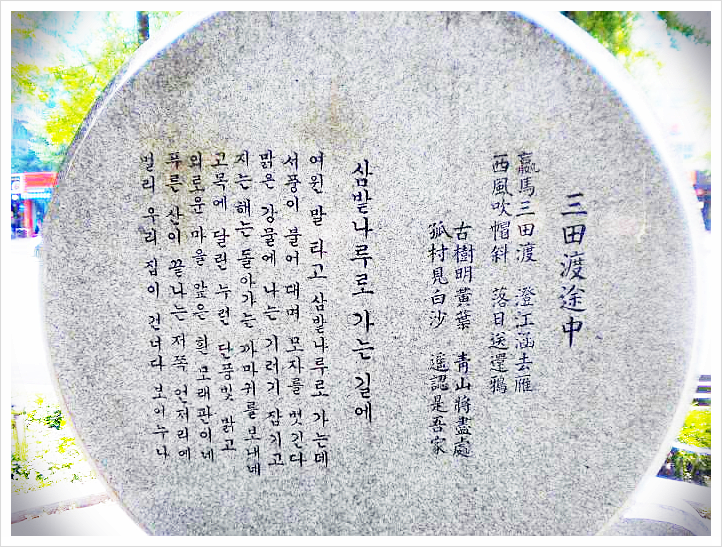 三田渡途中
羸馬三田渡 澄江涵去雁
西風吹帽斜 落日送還鴉
古樹明黃葉 靑山將盡處
孤村見白沙 遙認是吾家
삼밭나루로 가는 길에
여윈 말 타고 삼밭나루로 가는데
서풍이 불어 대며 모자를 벗긴다
맑은 강물에 나는 기러기 잠기고
지는 해는 돌아가는 까마귀를 보내네
고목에 달린 누런 단풍빛 밝고
외로운 마을 앞은 흰 모래판이네
푸른 산이 끝나는 저쪽 언저리에
멀리 우리 집이 건너다 보이누나